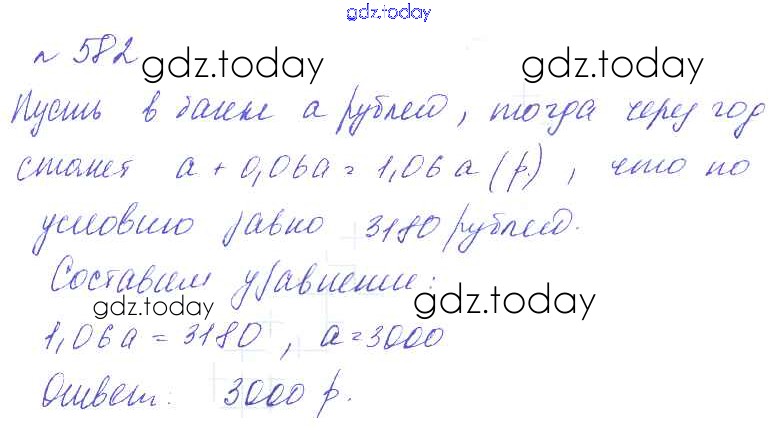 gdz.today
n 582
gdz.today gdz.today
Пусть в банке a рублей, тогда через год
станет a + 0,06a = 1,06 a (р.), что по
условию равно 3180 рублей.
Составим уравнение:
gdz.today gdz.today
1,06a = 3180, a = 3000
Ответ: 3000 р.